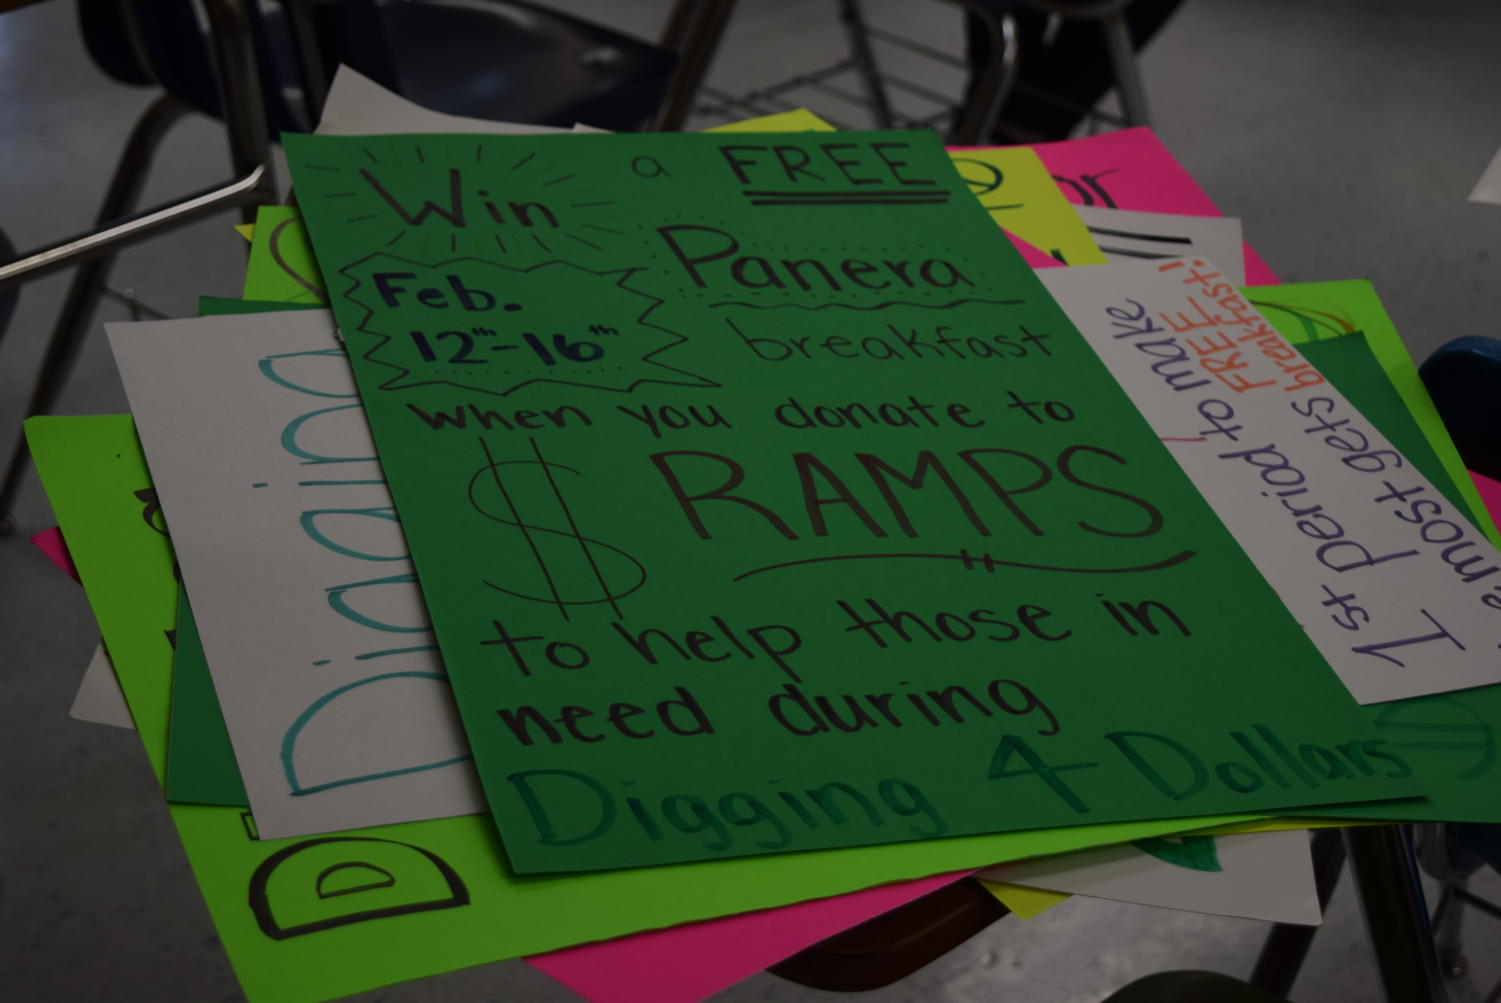 Win a FREE
Panera
breakfast
Feb.
12th-16th
when you donate to
$ RAMPS
to help those in
need during
Digging 4 Dollars
1st period to make
most gets
FREE
breakfast!
or
D